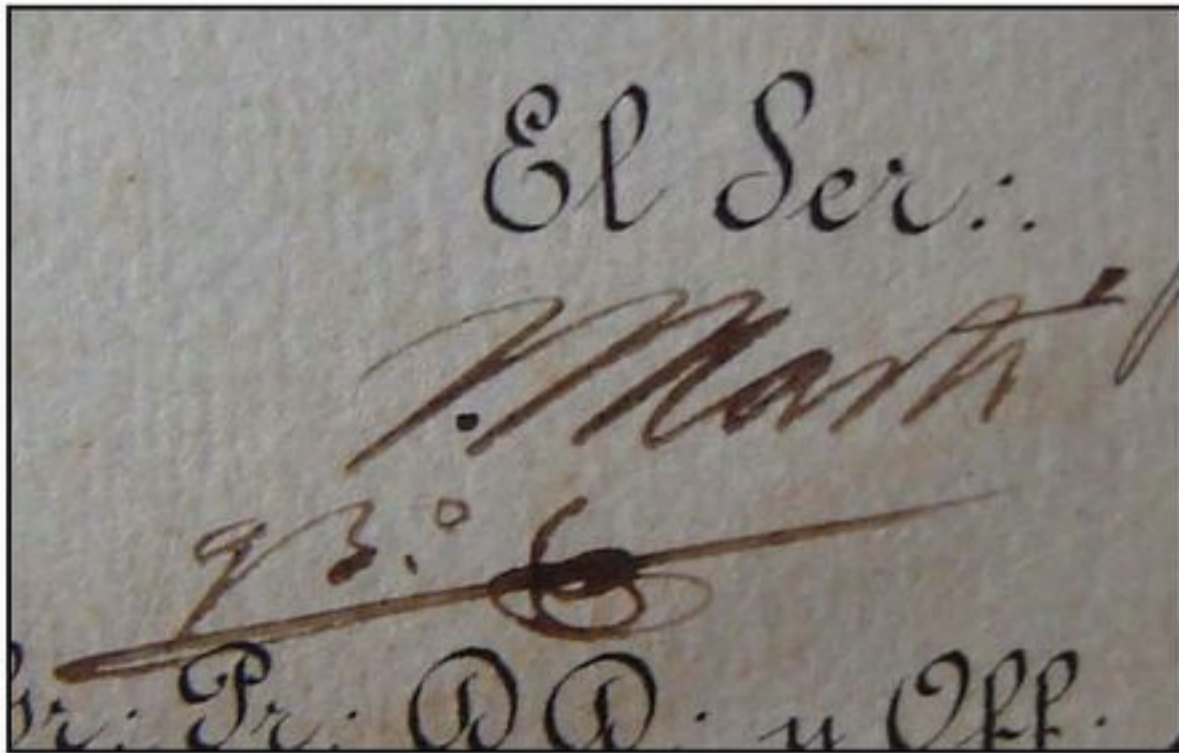 El Ser∴
J. Martí
g 3.º
Gr: Pr: DD: y Off: